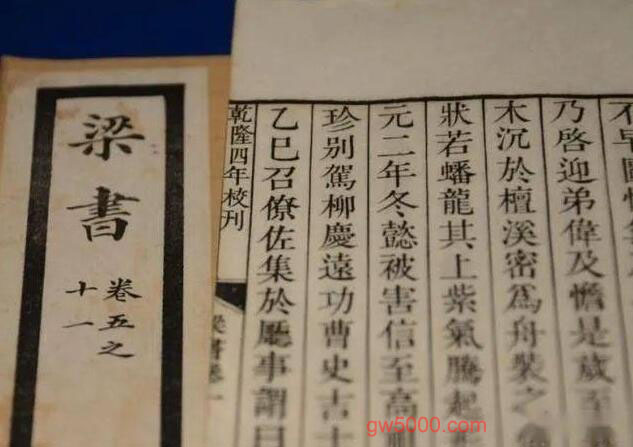 不早圖悔
乃啓迎弟偉及憺是歲至
木沉於檀溪密爲舟裝之
狀若蟠龍其上紫氣騰起
元二年冬懿被害信至高
珍別駕柳慶遠功曹史吉士
乙巳召僚佐集於廳事謂曰
乾隆四年校刊
梁書卷一
梁書
卷五之
十一
gw5000.com